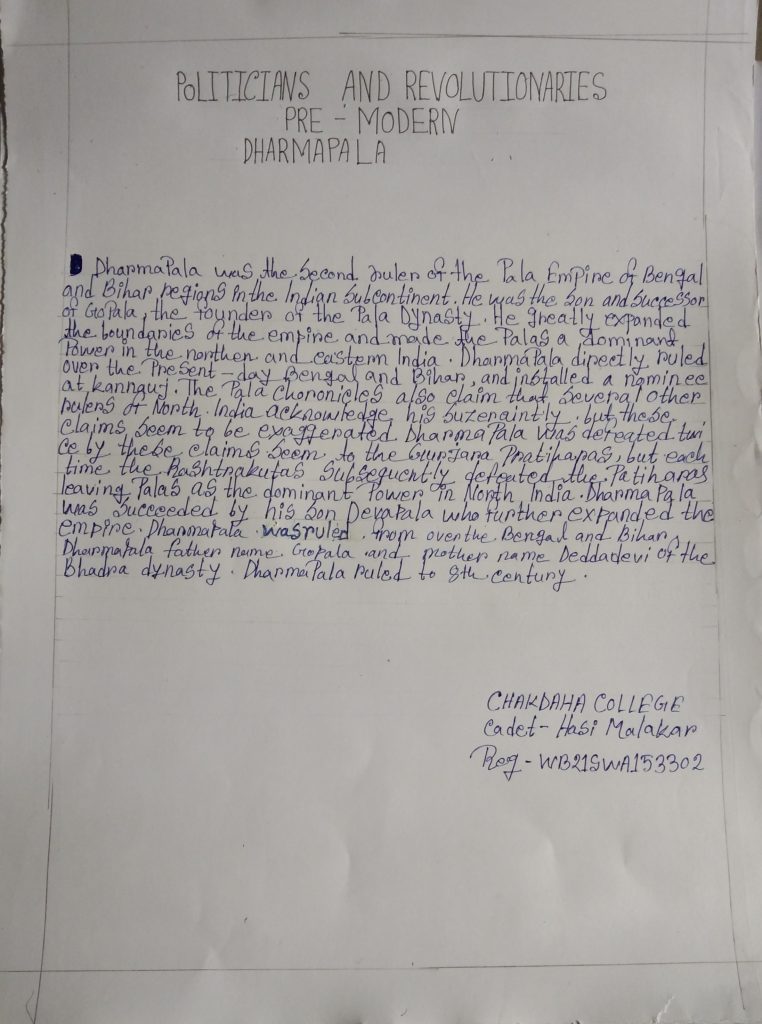 POLITICIANS AND REVOLUTIONARIES
PRE - MODERN
DHARMAPALA
DharmaPala was the second ruler of the Pala Empire of Bengal
and Bihar regions in the Indian Subcontinent. He was the son and successor
of Gopala, the founder of the Pala Dynasty. He greatly expanded
the boundaries of the empire and made the Palas a dominant
Power in the northen and eastern India. DharmaPala directly ruled
over the Present-day Bengal and Bihar, and installed a nominee
at kannauj. The Pala Choronicles also claim that several other
rulers of North India acknowledge his suzeraintly, but these
claims seem to be exaggerated DharmaPala was defeated twi
ce by these claims seem to the Gurjara Pratiharas, but each
time the Rashtrakutas Subsequently defeated the Patiharas
leaving Palas as the dominant Power in North India. DharmaPala
was succeeded by his son DevaPala who further expanded the
empire. DharmaPala was ruled from over the Bengal and Bihar,
DharmaPala father name Gopala and mother name Deddadevi of the
Bhadra dynasty. DharmaPala ruled to 8th century.
CHAKDAHA COLLEGE
Cadet - Hasi Malakar
Reg - WB21SWA153302